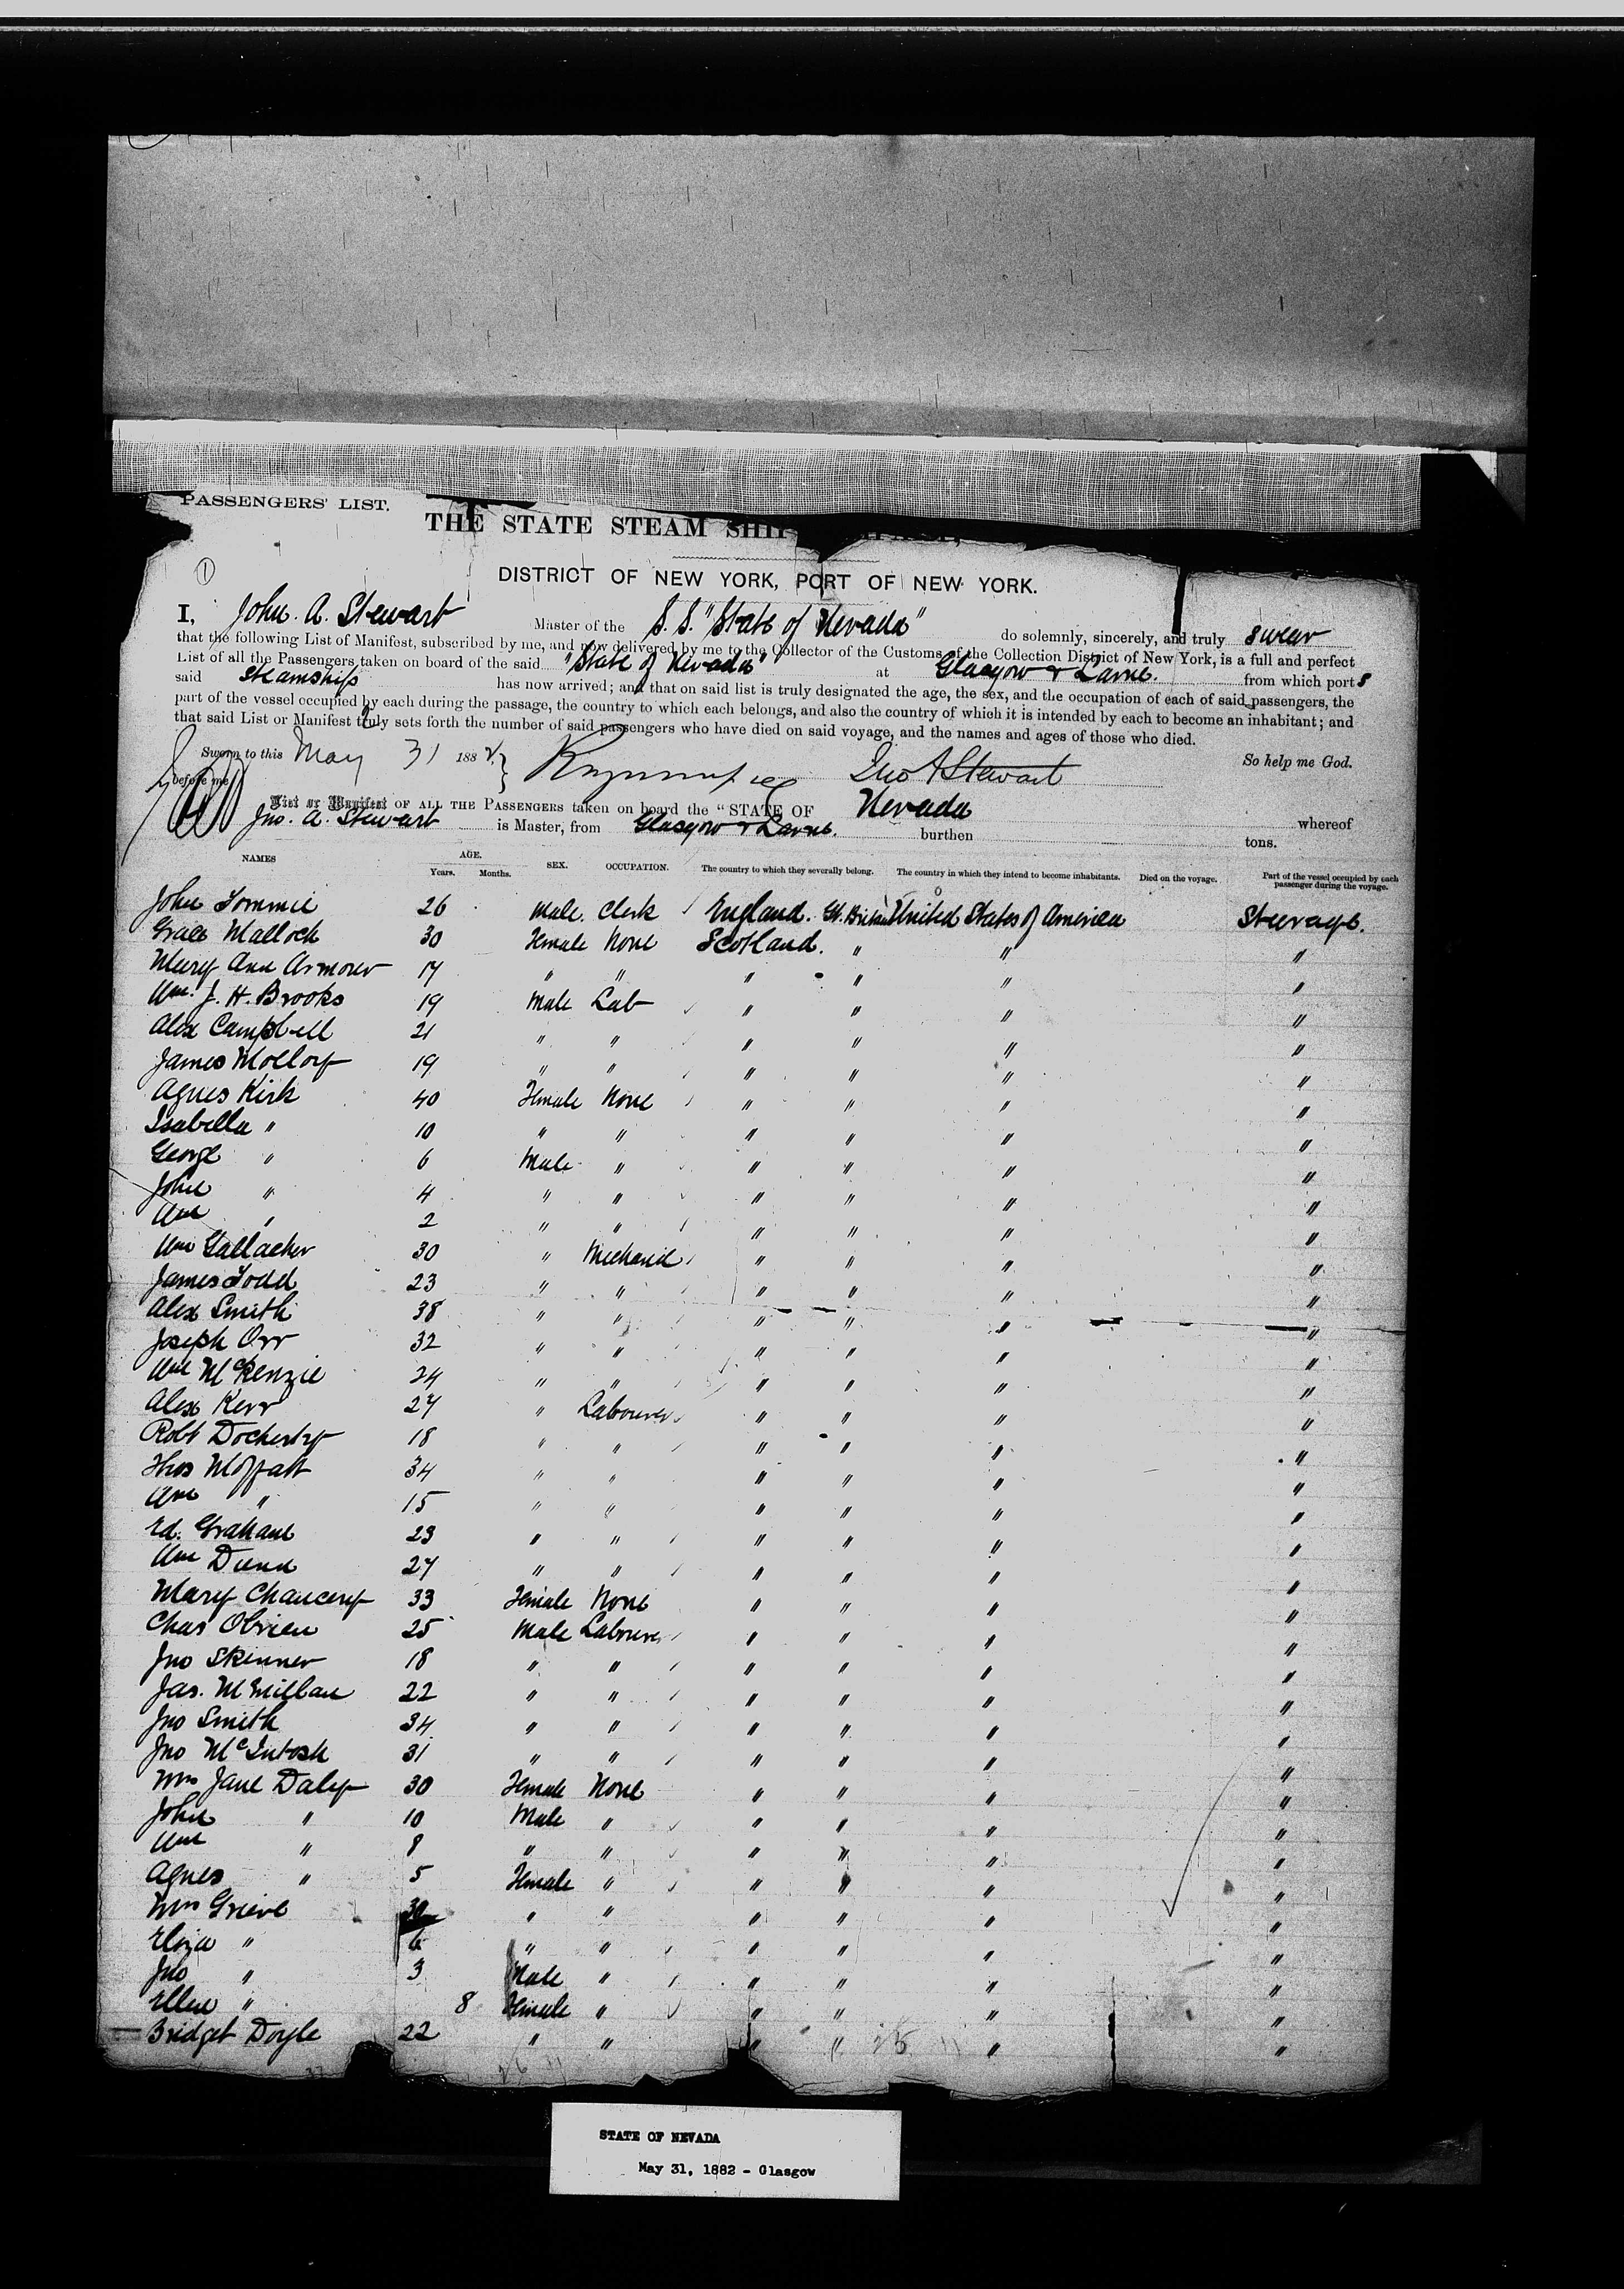 PASSENGERS' LIST.
THE STATE STEAM SHIP
1
DISTRICT OF NEW YORK, PORT OF NEW YORK.
I, John. A. Stewart Master of the S.S. "State of Nevada" do solemnly, sincerely, and truly swear
that the following List of Manifest, subscribed by me, and now delivered by me to the Collector of the Customs of the Collection District of New York, is a full and perfect
List of all the Passengers taken on board of the said "State of Nevada" at Glasgow & Larne. from which port s
said Steamship has now arrived; and that on said list is truly designated the age, the sex, and the occupation of each of said passengers, the
part of the vessel occupied by each during the passage, the country to which each belongs, and also the country of which it is intended by each to become an inhabitant; and
that said List or Manifest truly sets forth the number of said passengers who have died on said voyage, and the names and ages of those who died.
Sworn to this May 31 1882 Jno A Stewart So help me God.
before me
List or Manifest OF ALL THE PASSENGERS taken on board the "STATE OF Nevada whereof
Jno. A. Stewart is Master, from Glasgow & Larne. burthen tons.
NAMES AGE. Years. Months. SEX. OCCUPATION. The country to which they severally belong. The country in which they intend to become inhabitants. Died on the voyage. Part of the vessel occupied by each passenger during the voyage.
John Tommie 26 Male. Clerk England. Gt. Britain United States of America Steerage.
Grace Malloch 30 Female None Scotland. " " "
Mary Ann Armour 17 " " " " " "
Wm. J. H. Brooks 19 Male Lab " " " "
Alex Campbell 21 " " " " " "
James Molloy 19 " " " " " "
Agnes Kirk 40 Female None " " " "
Isabella " 10 " " " " " "
George " 6 Male " " " " "
John " 4 " " " " " "
Wm " 2 " " " " " "
Wm Gallacher 30 " Mechanic " " " "
James Todd 23 " " " " " "
Alex Smith 38 " " " " " "
Joseph Orr 32 " " " " " "
Wm McKenzie 24 " " " " " "
Alex Kerr 27 " Labourer " " " "
Robt Docherty 18 " " " " " "
Thos Moffatt 34 " " " " " "
Wm " 15 " " " " " "
Ed. Graham 23 " " " " " "
Wm Dunn 27 " " " " " "
Mary Chancery 33 Female None " " " "
Chas Obrien 25 Male Labourer " " " "
Jno Skinner 18 " " " " " "
Jas. McMillan 22 " " " " " "
Jno Smith 34 " " " " " "
Jno McIntosh 31 " " " " " "
Mrs Jane Daly 30 Female None " " " "
John " 10 Male " " " " "
Wm " 8 " " " " " "
Agnes " 5 Female " " " " "
Mrs Grieve 30 " " " " " "
Eliza " 6 " " " " " "
Jno " 3 Male " " " " "
Ellen " 8 Female " " " " "
Bridget Doyle 22 " " " " " "
STATE OF NEVADA
May 31, 1882 - Glasgow